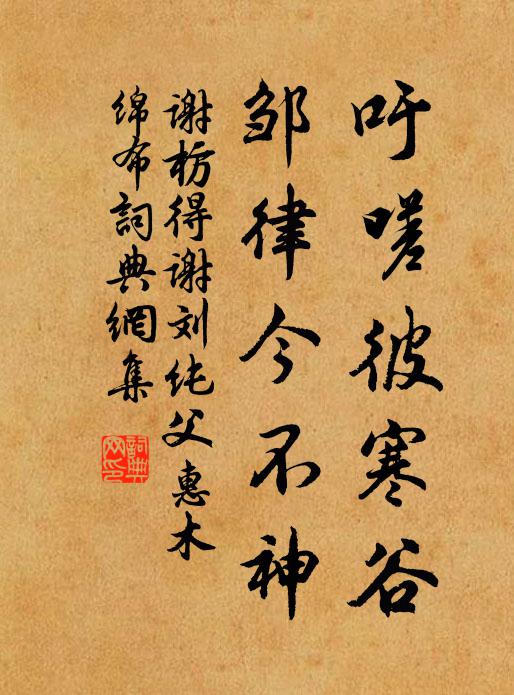 吁嗟彼寒谷
邹律今不神
谢枋得谢刘纯父惠木
绵布詞典網集
詞典网印